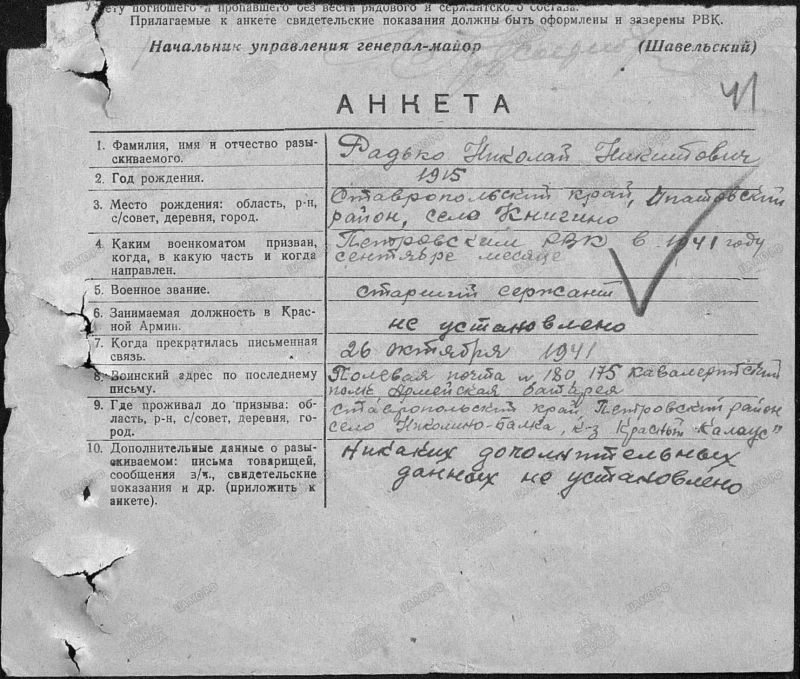 учету погибшего и пропавшего без вести рядового и сержантского состава.
Прилагаемые к анкете свидетельские показания должны быть оформлены и заверены РВК.
Начальник управления генерал-майор (Шавельский)
41
АНКЕТА
1. Фамилия, имя и отчество разы-
скиваемого.
Радько Николай Никитович
2. Год рождения.
1915
3. Место рождения: область, р-н,
с/совет, деревня, город.
Ставропольский край, Ипатовский
район, село Книгино
4. Каким военкоматом призван,
когда, в какую часть и когда
направлен.
Петровским РВК в 1941 году
сентябре месяце
5. Военное звание.
старший сержант
6. Занимаемая должность в Крас-
ной Армии.
не установлено
7. Когда прекратилась письменная
связь.
26 октября 1941
8. Воинский адрес по последнему
письму.
Полевая почта № 180 175 кавалерийский
полк Армейская батарея
9. Где проживал до призыва: об-
ласть, р-н, с/совет, деревня, го-
род.
Ставропольский край, Петровский район
село Николино-Балка, к-з Красный Калаус"
10. Дополнительные данные о разы-
скиваемом: письма товарищей,
сообщения з/ч., свидетельские
показания и др. (приложить к
анкете).
Никаких дополнительных
данных не установлено